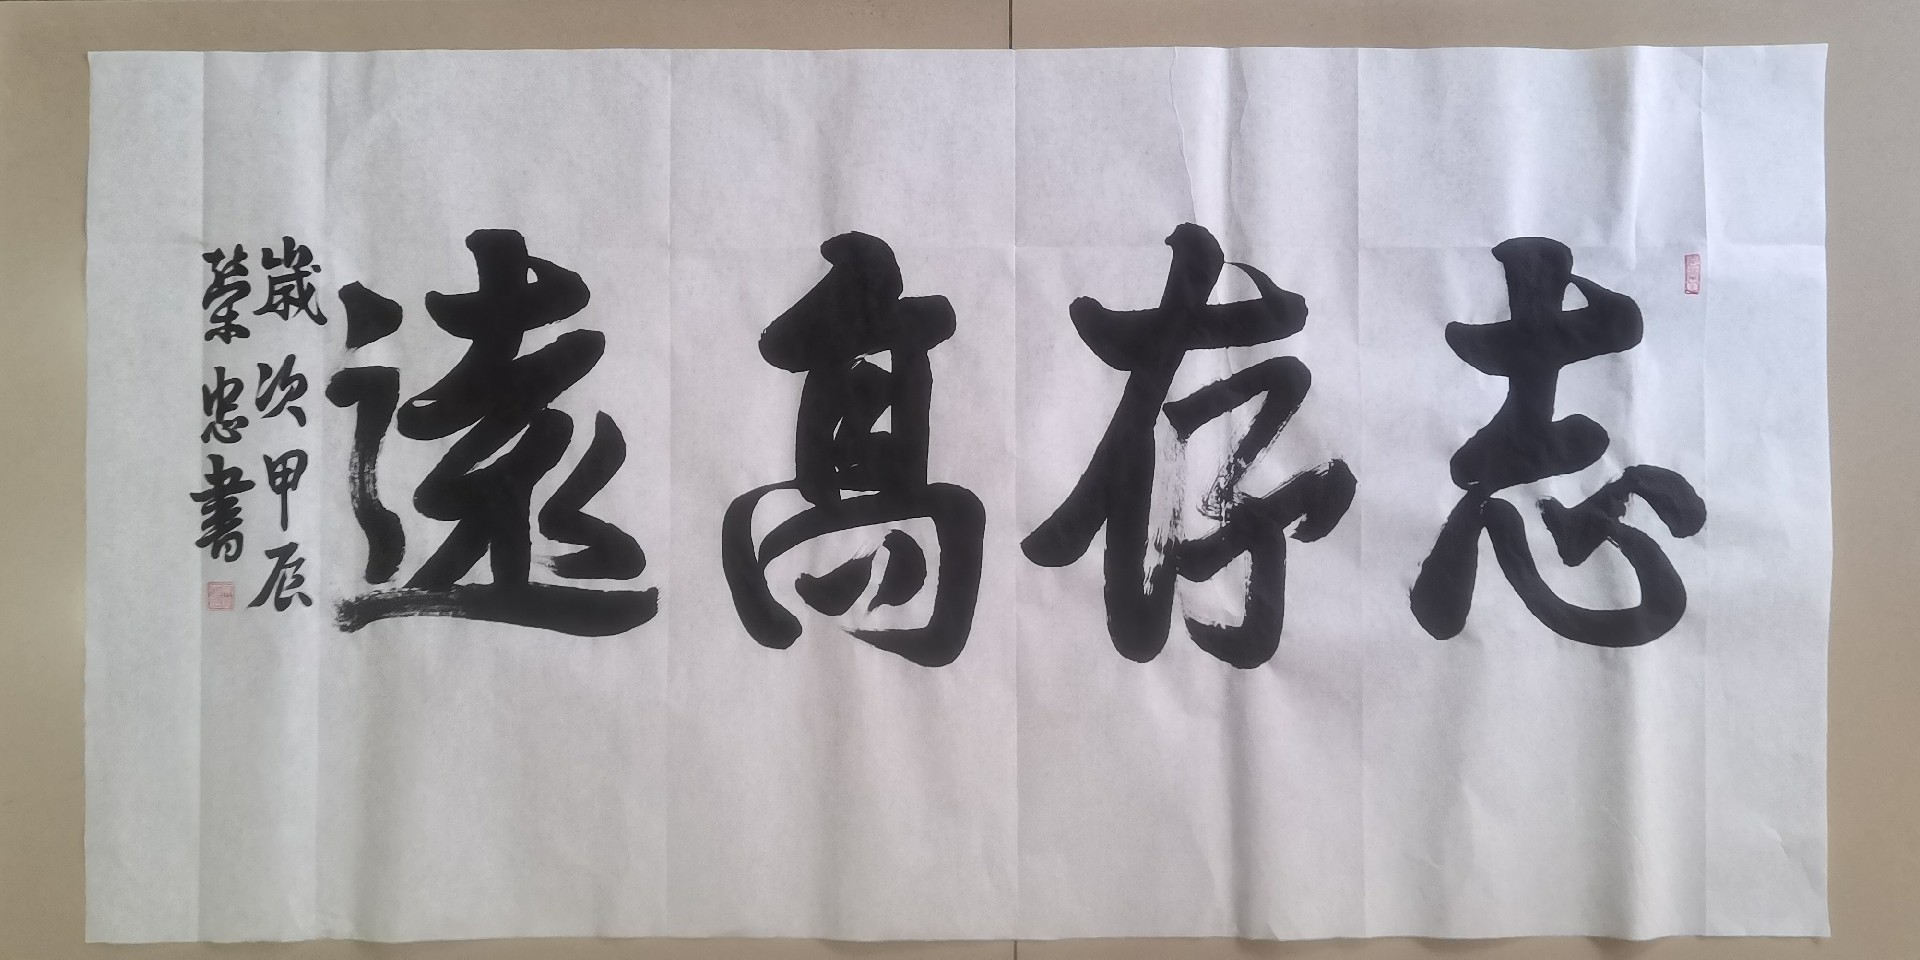 志存高遠
歲次甲辰
榮忠書